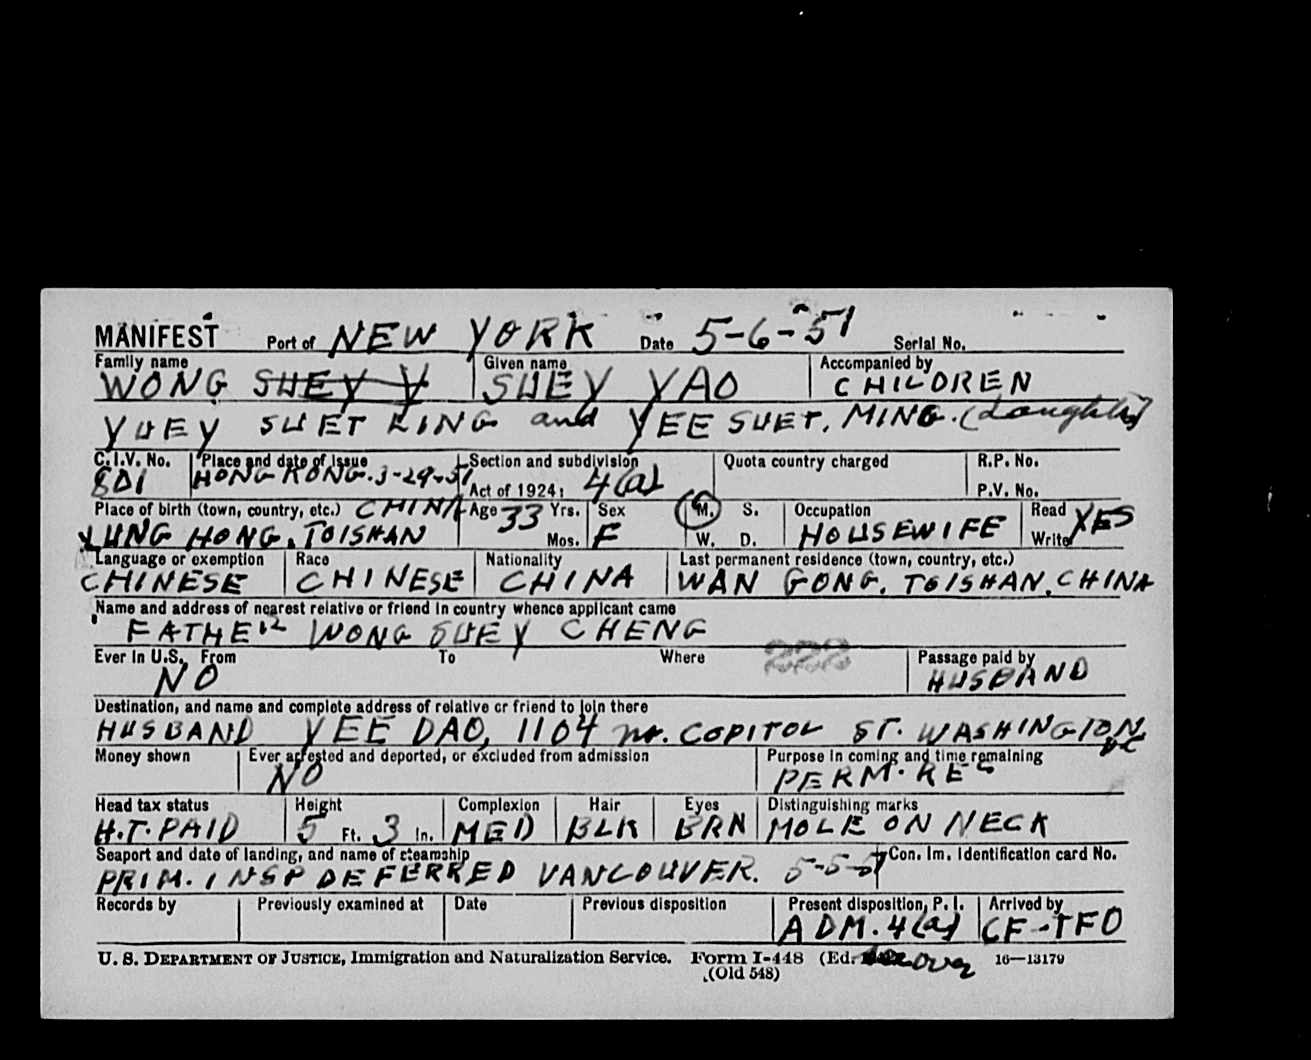 MANIFEST Port of NEW YORK Date 5-6-51 Serial No.
Family name Given name Accompanied by
WONG SUEY Y SUEY YAO CHILDREN
YUEY SUET LING and YEE SUET. MING. (daughters)
C.I.V. No. Place and date of issue Section and subdivision Quota country charged R.P. No.
801 HONG KONG. 3-29-51 Act of 1924: 4(a) P.V. No.
Place of birth (town, country, etc.) CHINA Age 33 Yrs. Sex M. S. Occupation Read YES
LUNG HONG, TOISHAN Mos. F W. D. HOUSEWIFE Write
Language or exemption Race Nationality Last permanent residence (town, country, etc.)
CHINESE CHINESE CHINA WAN GONG, TOISHAN, CHINA
Name and address of nearest relative or friend in country whence applicant came
FATHER WONG SUEY CHENG
Ever in U.S. From To Where 222 Passage paid by
NO HUSBAND
Destination, and name and complete address of relative or friend to join there
HUSBAND YEE DAO, 1104 no. COPITOL ST. WASHINGTON DC
Money shown Ever arrested and deported, or excluded from admission Purpose in coming and time remaining
NO PERM. RES
Head tax status Height Complexion Hair Eyes Distinguishing marks
H.T. PAID 5 Ft. 3 In. MED BLK BRN MOLE ON NECK
Seaport and date of landing, and name of steamship Con. Im. Identification card No.
PRIM. INSP DEFERRED VANCOUVER. 5-5-51
Records by Previously examined at Date Previous disposition Present disposition, P. I. Arrived by
ADM. 4(a) CF-TFO
U. S. DEPARTMENT OF JUSTICE, Immigration and Naturalization Service. Form I-448 (Ed. over 16—13179
(Old 548)